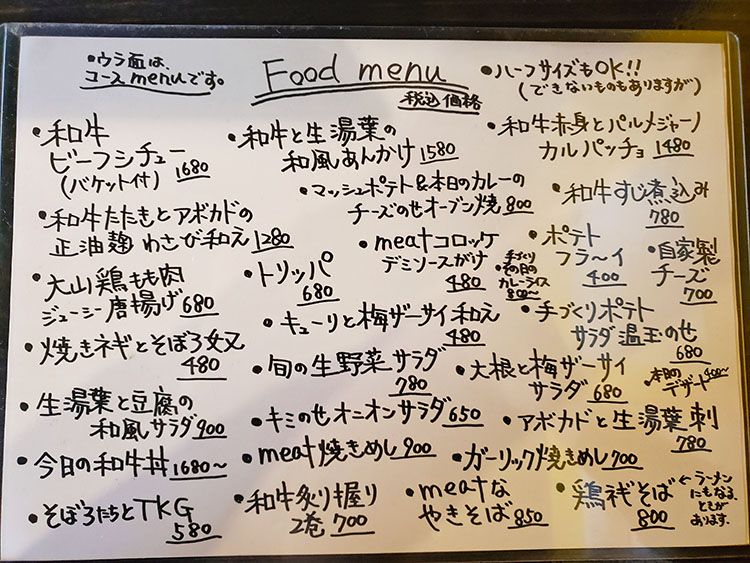 •ウラ面は、
コースmenuです。
Food menu
税込価格
•ハーフサイズもOK!!
(できないものもありますが)
•和牛
ビーフシチュー
(バケット付) 1680
•和牛と生湯葉の
和風あんかけ 1580
•和牛赤身とパルメジャーノ
カルパッチョ 1480
•和牛たたきとアボカドの
正油麹 わさび和え 1280
•マッシュポテト&本日のカレーの
チーズのせオーブン焼 800
•和牛すじ煮込み
780
•大山鶏もも肉
ジューシー唐揚げ 680
•トリッパ
680
•meatコロッケ
デミソースがけ
480
•手づくり
その日の
カレーライス
800〜
•ポテト
フラ〜イ
400
•自家製
チーズ
700
•焼きネギとそぼろ奴
480
•キューリと梅ザーサイ和え
480
•手づくりポテト
サラダ温玉のせ
680
•旬の生野菜サラダ
780
•大根と梅ザーサイ
サラダ 680
•本日の
デザート 400〜
•生湯葉と豆腐の
和風サラダ 900
•キミのせオニオンサラダ 650
•アボカドと生湯葉刺
780
•今日の和牛丼 1680〜
•meat焼きめし 900
•ガーリック焼きめし 700
•そぼろたちとTKG
580
•和牛炙り握り
2巻 700
•meatな
やきそば 850
•鶏ネギそば
800
←ラーメン
にもなる、
ときが
あります。